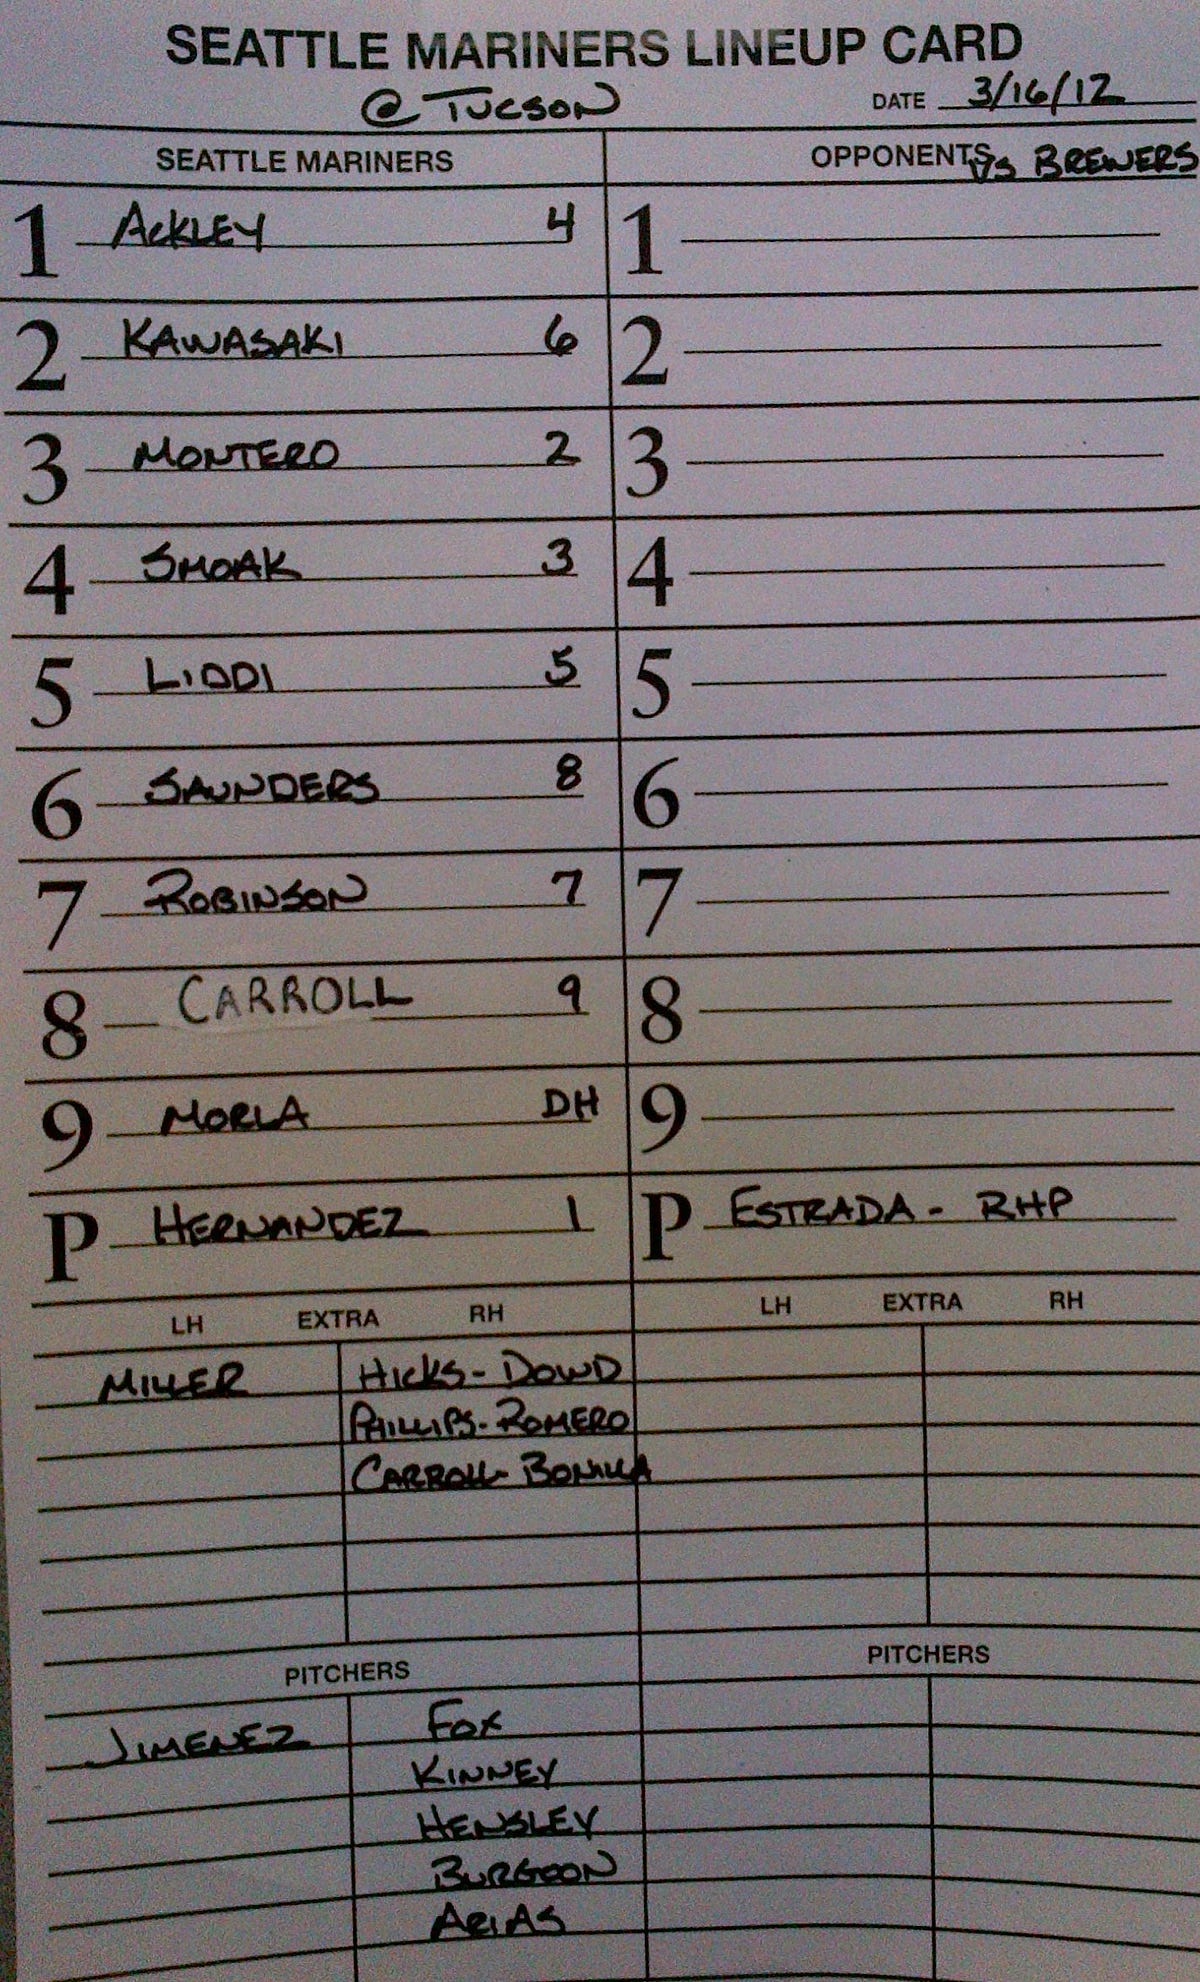 SEATTLE MARINERS LINEUP CARD
@ TUCSON
DATE 3/16/12
SEATTLE MARINERS
OPPONENTS VS BREWERS
1 ACKLEY 4
1
2 KAWASAKI 6
2
3 MONTERO 2
3
4 SMOAK 3
4
5 LIDDI 5
5
6 SAUNDERS 8
6
7 ROBINSON 7
7
8 CARROLL 9
8
9 MORLA DH
9
P HERNANDEZ 1
P ESTRADA - RHP
LH EXTRA RH
LH EXTRA RH
MILLER HICKS - DOWD
PHILLIPS - ROMERO
CARROLL - BONILLA
PITCHERS
PITCHERS
JIMENEZ FOX
KINNEY
HENSLEY
BURGOON
ARIAS